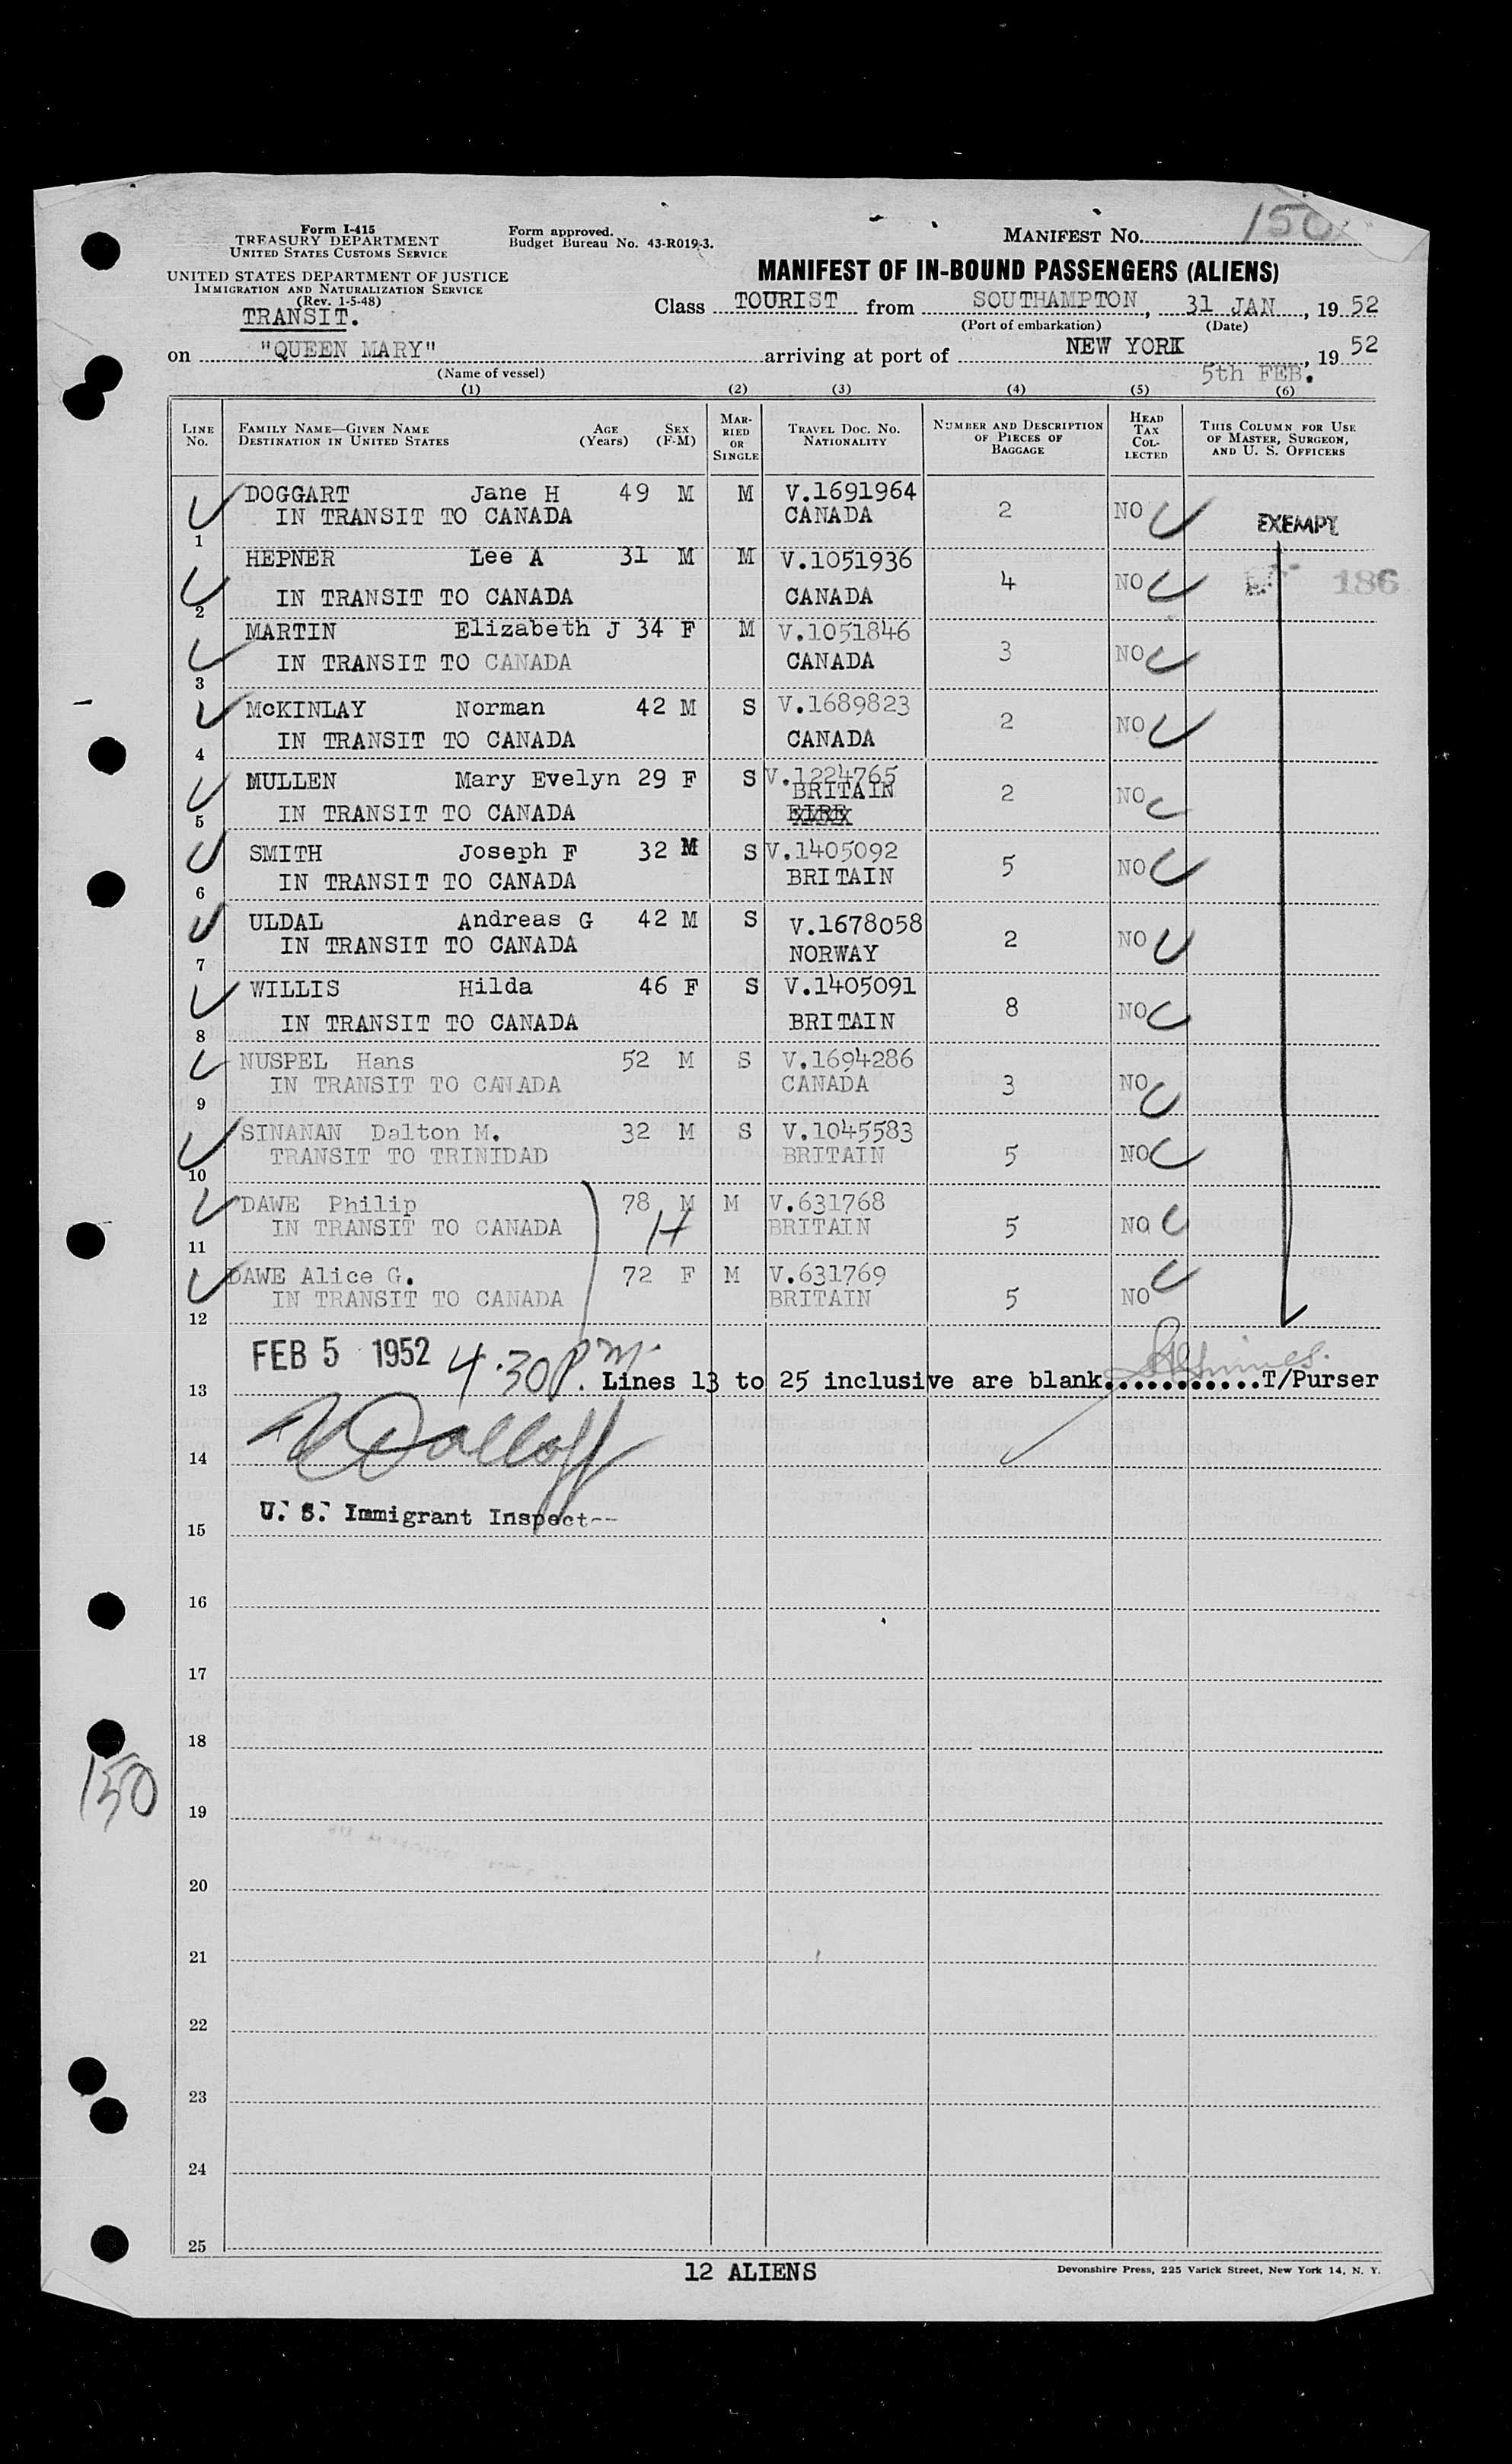 Form I-415
TREASURY DEPARTMENT
UNITED STATES CUSTOMS SERVICE
Form approved.
Budget Bureau No. 43-R019-3.
MANIFEST NO. 150
UNITED STATES DEPARTMENT OF JUSTICE
IMMIGRATION AND NATURALIZATION SERVICE
(Rev. 1-5-48)
TRANSIT.
MANIFEST OF IN-BOUND PASSENGERS (ALIENS)
Class TOURIST from SOUTHAMPTON, 31 JAN, 1952
(Port of embarkation) (Date)
on "QUEEN MARY" arriving at port of NEW YORK, 19 52
(Name of vessel) 5th FEB.
(1) (2) (3) (4) (5) (6)
LINE NO. FAMILY NAME—GIVEN NAME DESTINATION IN UNITED STATES AGE (Years) SEX (F-M) MARRIED OR SINGLE TRAVEL DOC. NO. NATIONALITY NUMBER AND DESCRIPTION OF PIECES OF BAGGAGE HEAD TAX COLLECTED THIS COLUMN FOR USE OF MASTER, SURGEON, AND U. S. OFFICERS
1 DOGGART Jane H 49 M M V.1691964
IN TRANSIT TO CANADA CANADA 2 NO EXEMPT
2 HEPNER Lee A 31 M M V.1051936
IN TRANSIT TO CANADA CANADA 4 NO 186
3 MARTIN Elizabeth J 34 F M V.1051846
IN TRANSIT TO CANADA CANADA 3 NO
4 McKINLAY Norman 42 M S V.1689823
IN TRANSIT TO CANADA CANADA 2 NO
5 MULLEN Mary Evelyn 29 F S V.1224765
BRITAIN
IN TRANSIT TO CANADA EIRE 2 NO
6 SMITH Joseph F 32 M S V.1405092
IN TRANSIT TO CANADA BRITAIN 5 NO
7 ULDAL Andreas G 42 M S V.1678058
IN TRANSIT TO CANADA NORWAY 2 NO
8 WILLIS Hilda 46 F S V.1405091
IN TRANSIT TO CANADA BRITAIN 8 NO
9 NUSPEL Hans 52 M S V.1694286
IN TRANSIT TO CANADA CANADA 3 NO
10 SINANAN Dalton M. 32 M S V.1045583
TRANSIT TO TRINIDAD BRITAIN 5 NO
11 DAWE Philip 78 M M V.631768
IN TRANSIT TO CANADA H BRITAIN 5 NO
12 DAWE Alice G. 72 F M V.631769
IN TRANSIT TO CANADA BRITAIN 5 NO
FEB 5 1952 4.30 Pm.
13 Lines 13 to 25 inclusive are blank...........T/Purser
14
U. S. Immigrant Inspect
15
16
17
18
150
19
20
21
22
23
24
25
12 ALIENS
Devonshire Press, 225 Varick Street, New York 14, N. Y.